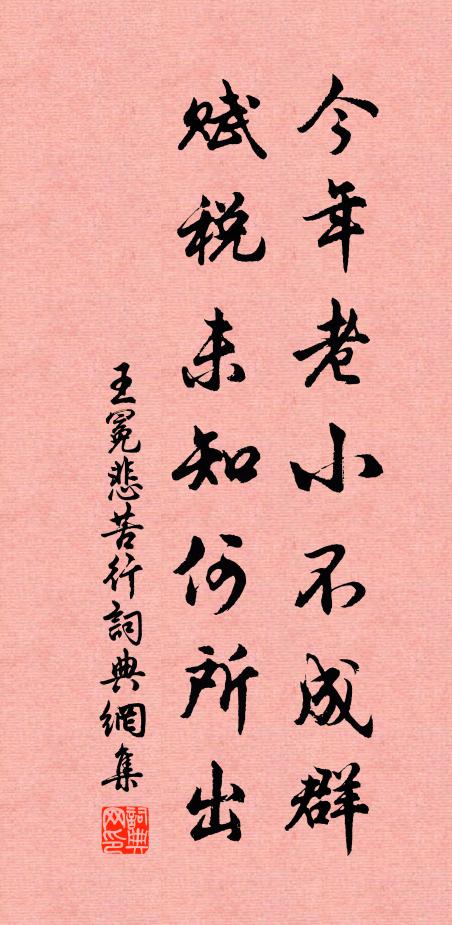 今年老小不成群
赋税未知何所出
王冕悲苦行詞典網集
詞典网印